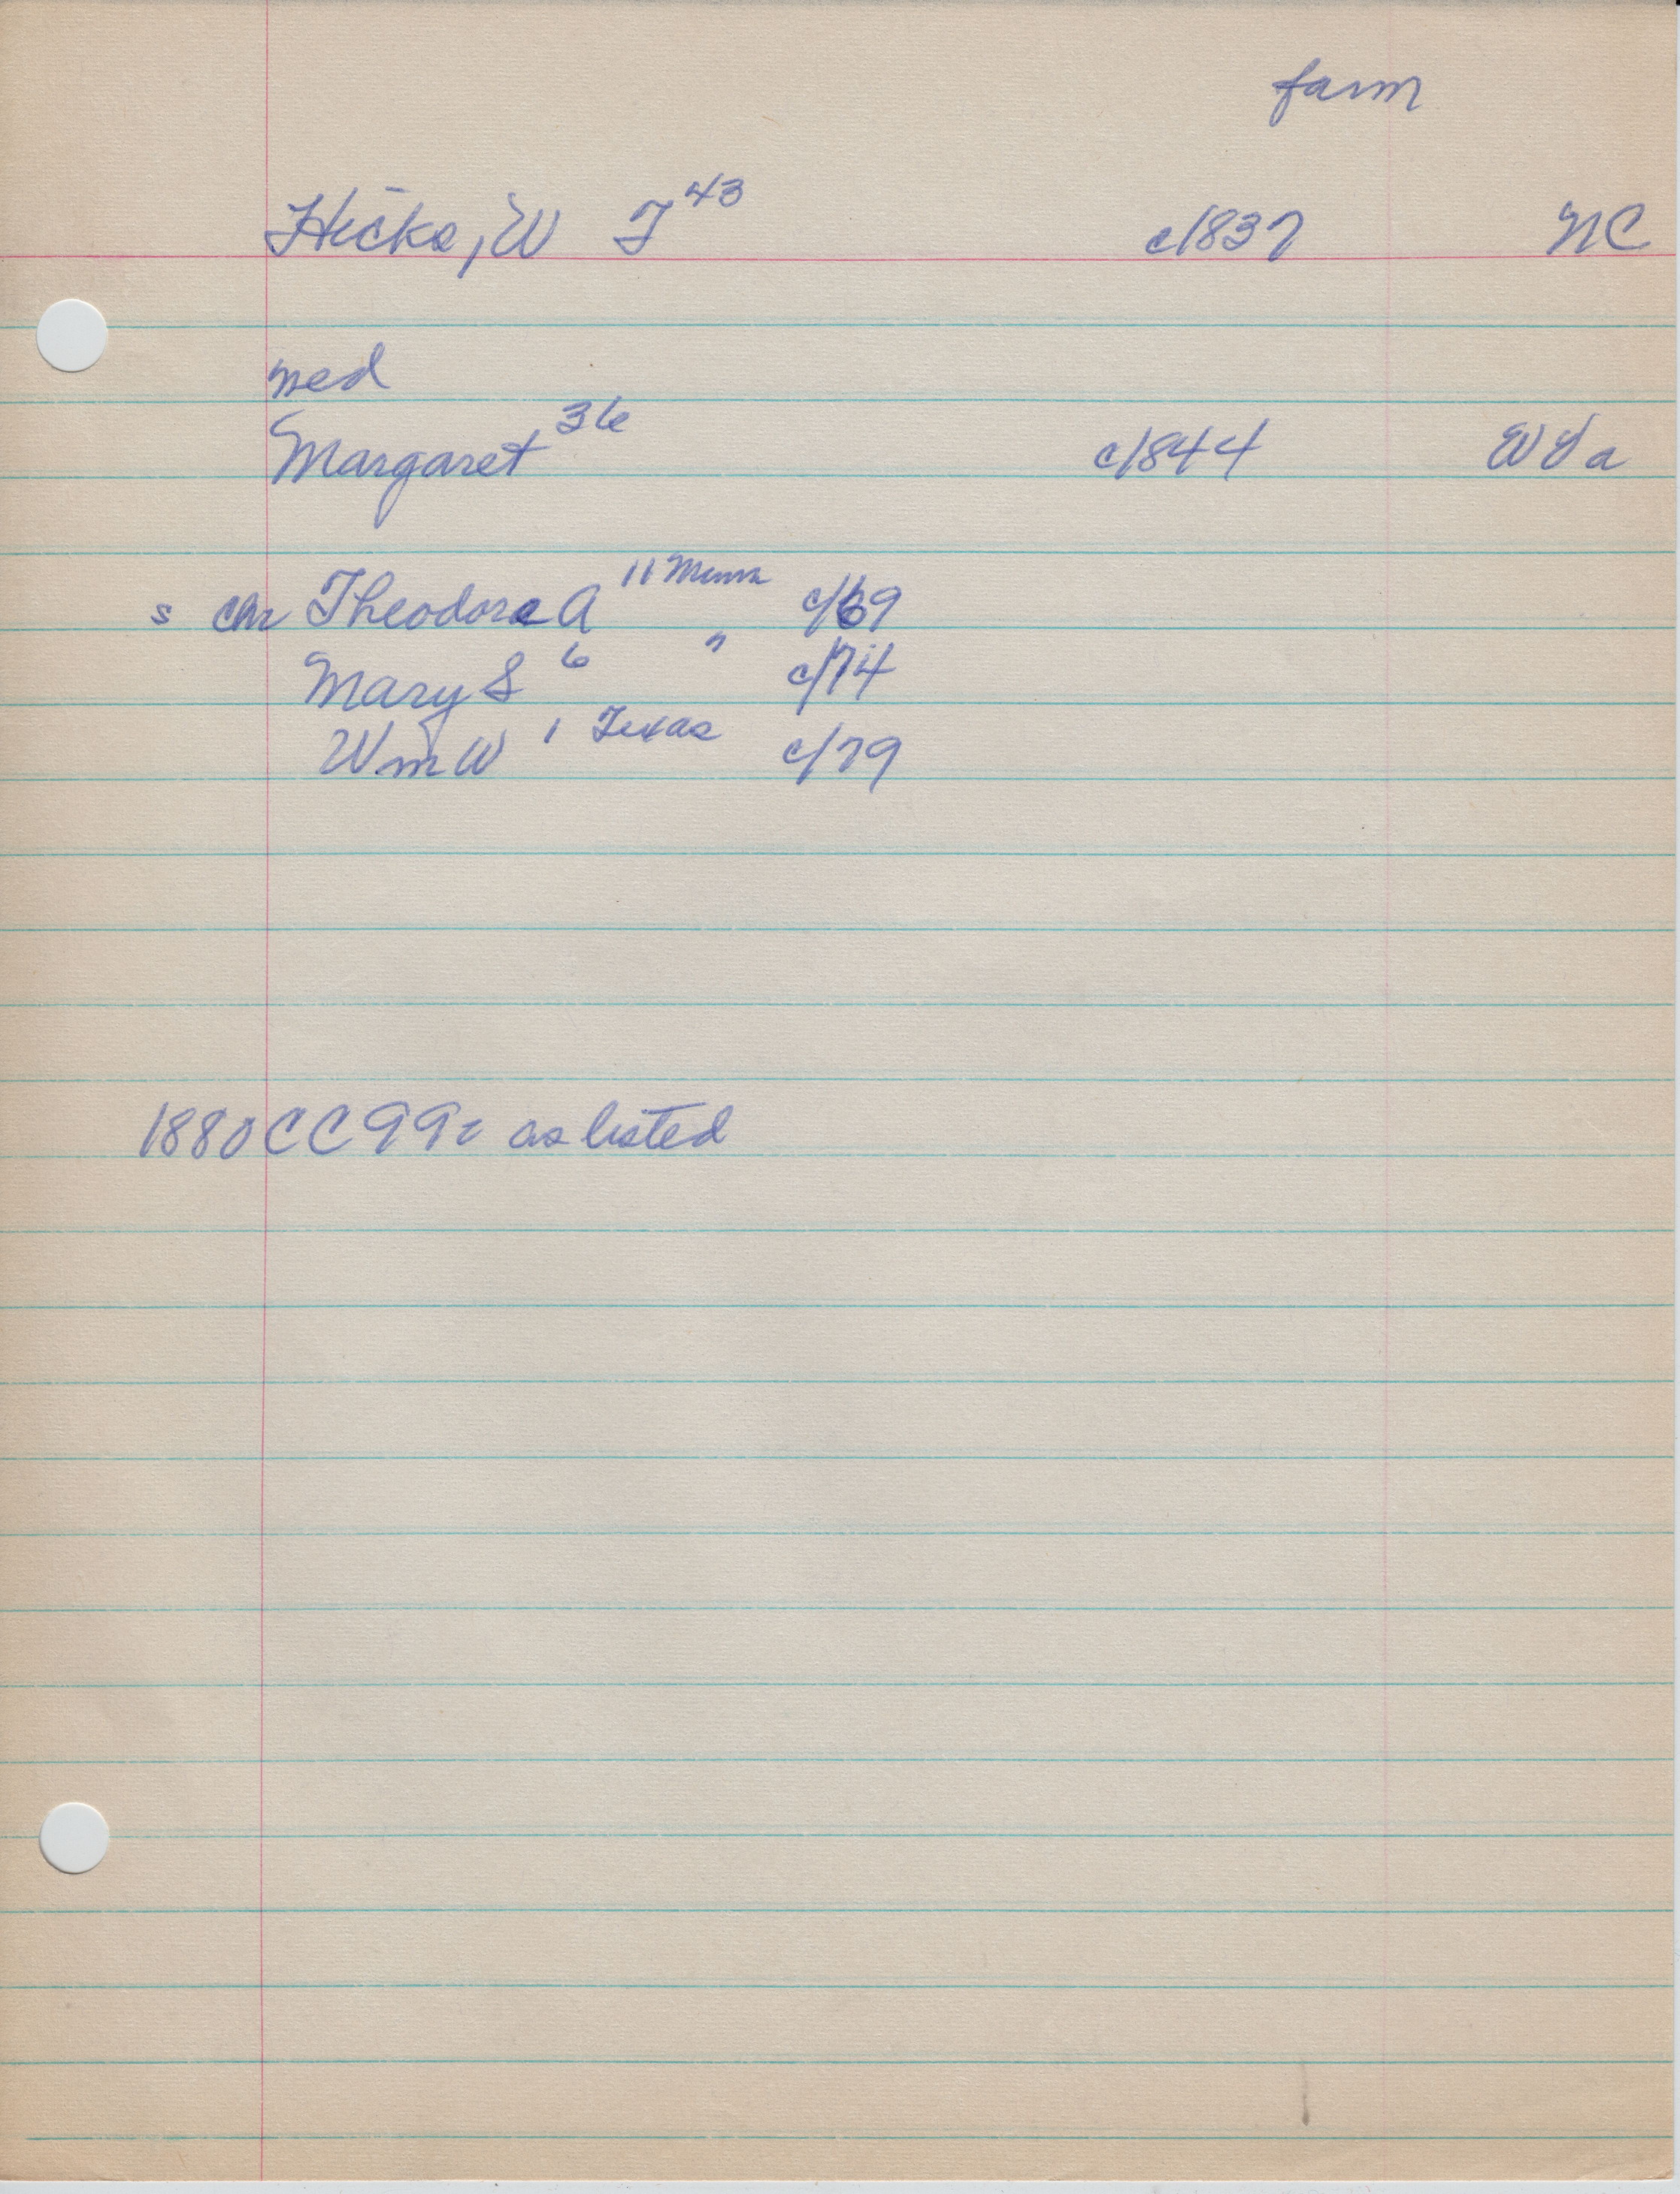 farm
Hicks, W T 43 c/1837 NC
med
Margaret 36 c/1844 WVa
s chr Theodore A 11 Minn c/69
Mary S 6 " c/74
Wm W 1 Texas c/79
1880 CC 99c as listed